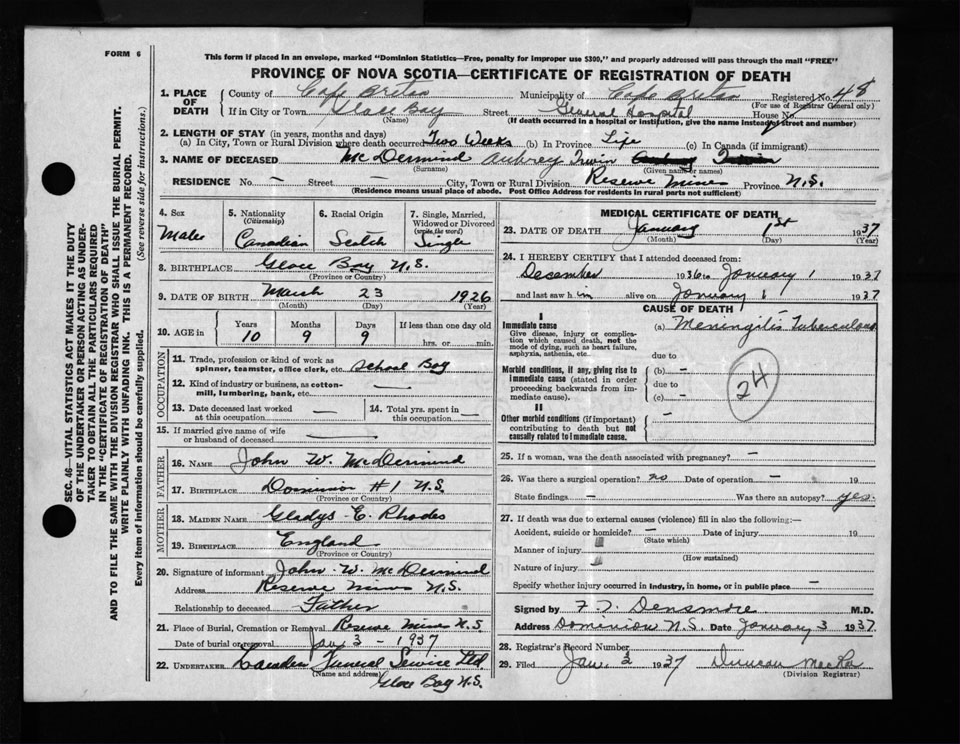 FORM 6
This form if placed in an envelope, marked "Dominion Statistics—Free, penalty for improper use $300," and properly addressed will pass through the mail "FREE"
PROVINCE OF NOVA SCOTIA—CERTIFICATE OF REGISTRATION OF DEATH
1. PLACE OF DEATH
County of Cape Breton Municipality of Cape Breton Registered No. 48
(For use of Registrar General only)
If in City or Town Glace Bay Street General Hospital House No.
(Name) (If death occurred in a hospital or institution, give the name instead of street and number)
2. LENGTH OF STAY (in years, months and days)
(a) In City, Town or Rural Division where death occurred Two Weeks (b) In Province Life (c) In Canada (if immigrant)
3. NAME OF DECEASED McDermind Aubrey Irwin
(Surname) (Given name or names)
RESIDENCE No. — Street — City, Town or Rural Division Reserve Mines Province N.S.
(Residence means usual place of abode. Post Office Address for residents in rural parts not sufficient)
4. Sex Male
5. Nationality (Citizenship) Canadian
6. Racial Origin Scotch
7. Single, Married, Widowed or Divorced (write the word) Single
8. BIRTHPLACE Glace Bay N.S.
(Province or Country)
9. DATE OF BIRTH March 23 1926
(Month) (Day) (Year)
10. AGE in Years Months Days If less than one day old
10 9 9 hrs. or min.
OCCUPATION
11. Trade, profession or kind of work as spinner, teamster, office clerk, etc. School Boy
12. Kind of industry or business, as cotton-mill, lumbering, bank, etc. —
13. Date deceased last worked at this occupation —
14. Total yrs. spent in this occupation —
15. If married give name of wife or husband of deceased —
FATHER
16. NAME John W. McDermind
17. BIRTHPLACE Dominion #1 N.S.
(Province or Country)
MOTHER
18. MAIDEN NAME Gladys E. Rhodes
19. BIRTHPLACE England
(Province or Country)
20. Signature of informant John W. McDermind
Address Reserve Mines N.S.
Relationship to deceased Father
21. Place of Burial, Cremation or Removal Reserve Mines N.S.
Date of burial or removal Jan 3 - 1937
22. UNDERTAKER Funeral Service Ltd
(Name and address)
Glace Bay N.S.
MEDICAL CERTIFICATE OF DEATH
23. DATE OF DEATH January 1st 1937
(Month) (Day) (Year)
24. I HEREBY CERTIFY that I attended deceased from:
December 1936 to January 1 1937
and last saw him alive on January 1 1937
CAUSE OF DEATH
I
Immediate cause (a) Meningitis Tuberculous
Give disease, injury or complication which caused death, not the mode of dying, such as heart failure, asphyxia, asthenia, etc.
due to
Morbid conditions, if any, giving rise to immediate cause (stated in order proceeding backwards from immediate cause).
(b) —
due to
(c) —
24
II
Other morbid conditions (if important) contributing to death but not causally related to immediate cause. —
25. If a woman, was the death associated with pregnancy? —
26. Was there a surgical operation? no Date of operation — 19
State findings — Was there an autopsy? yes.
27. If death was due to external causes (violence) fill in also the following:—
Accident, suicide or homicide? — Date of injury 19
(State which)
Manner of injury
(How sustained)
Nature of injury
Specify whether injury occurred in industry, in home, or in public place —
Signed by Densmore M.D.
Address Dominion N.S. Date January 3 1937
28. Registrar's Record Number
29. Filed Jan. 3 1937 Duncan MacRae
(Division Registrar)
SEC. 46—VITAL STATISTICS ACT MAKES IT THE DUTY
OF THE UNDERTAKER OR PERSON ACTING AS UNDER-
TAKER TO OBTAIN ALL THE PARTICULARS REQUIRED
IN THE "CERTIFICATE OF REGISTRATION OF DEATH"
AND TO FILE THE SAME WITH THE DIVISION REGISTRAR WHO SHALL ISSUE THE BURIAL PERMIT.
WRITE PLAINLY WITH UNFADING INK. THIS IS A PERMANENT RECORD.
Every item of information should be carefully supplied. (See reverse side for instructions.)